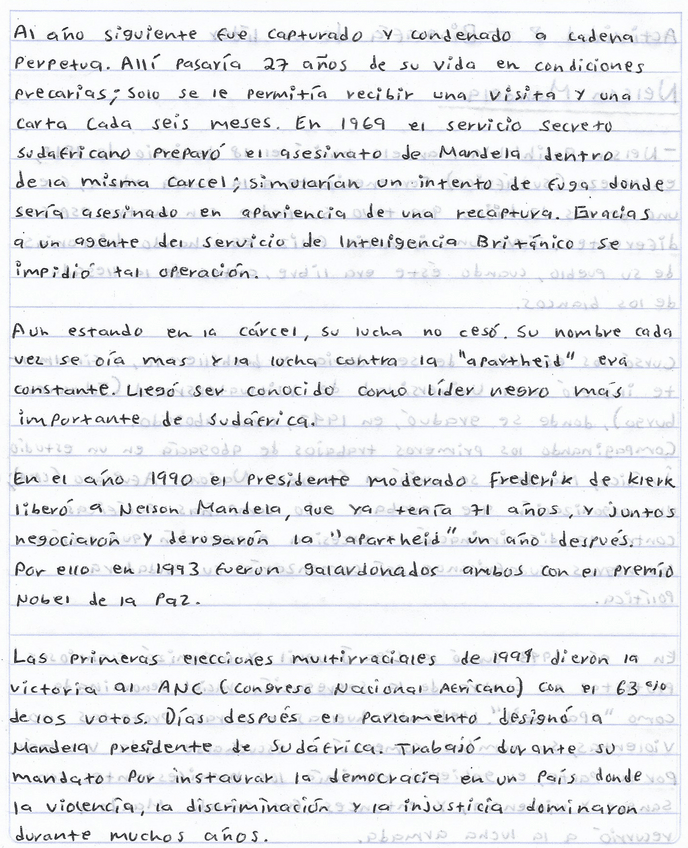 Al año siguiente fue capturado y condenado a cadena
perpetua. Allí pasaría 27 años de su vida en condiciones
precarias; solo se le permitía recibir una visita y una
carta cada seis meses. En 1969 el servicio secreto
sudafricano preparó el asesinato de Mandela dentro
de la misma carcel; simularían un intento de fuga donde
sería asesinado en apariencia de una recaptura. Gracias
a un agente del servicio de Inteligencia Británico se
impidió tal operación.
Aun estando en la cárcel, su lucha no cesó. Su nombre cada
vez se oía mas y la lucha contra la "apartheid" era
constante. Llegó ser conocido como líder negro más
importante de Sudáfrica.
En el año 1990 el presidente moderado Frederik de Klerk
liberó a Nelson Mandela, que ya tenía 71 años, y juntos
negociarón y derogarón la "apartheid" un año después.
Por ello en 1993 fueron galardonados ambos con el premio
Nobel de la Paz.
Las primeras elecciones multirraciales de 1994 dierón la
victoria al ANC (Congreso Nacional Africano) con el 63%
de los votos. Días después el parlamento designó a
Mandela presidente de Sudáfrica. Trabajó durante su
mandato por instaurar la democracia en un país donde
la violencia, la discriminación y la injusticia dominaron
durante muchos años.